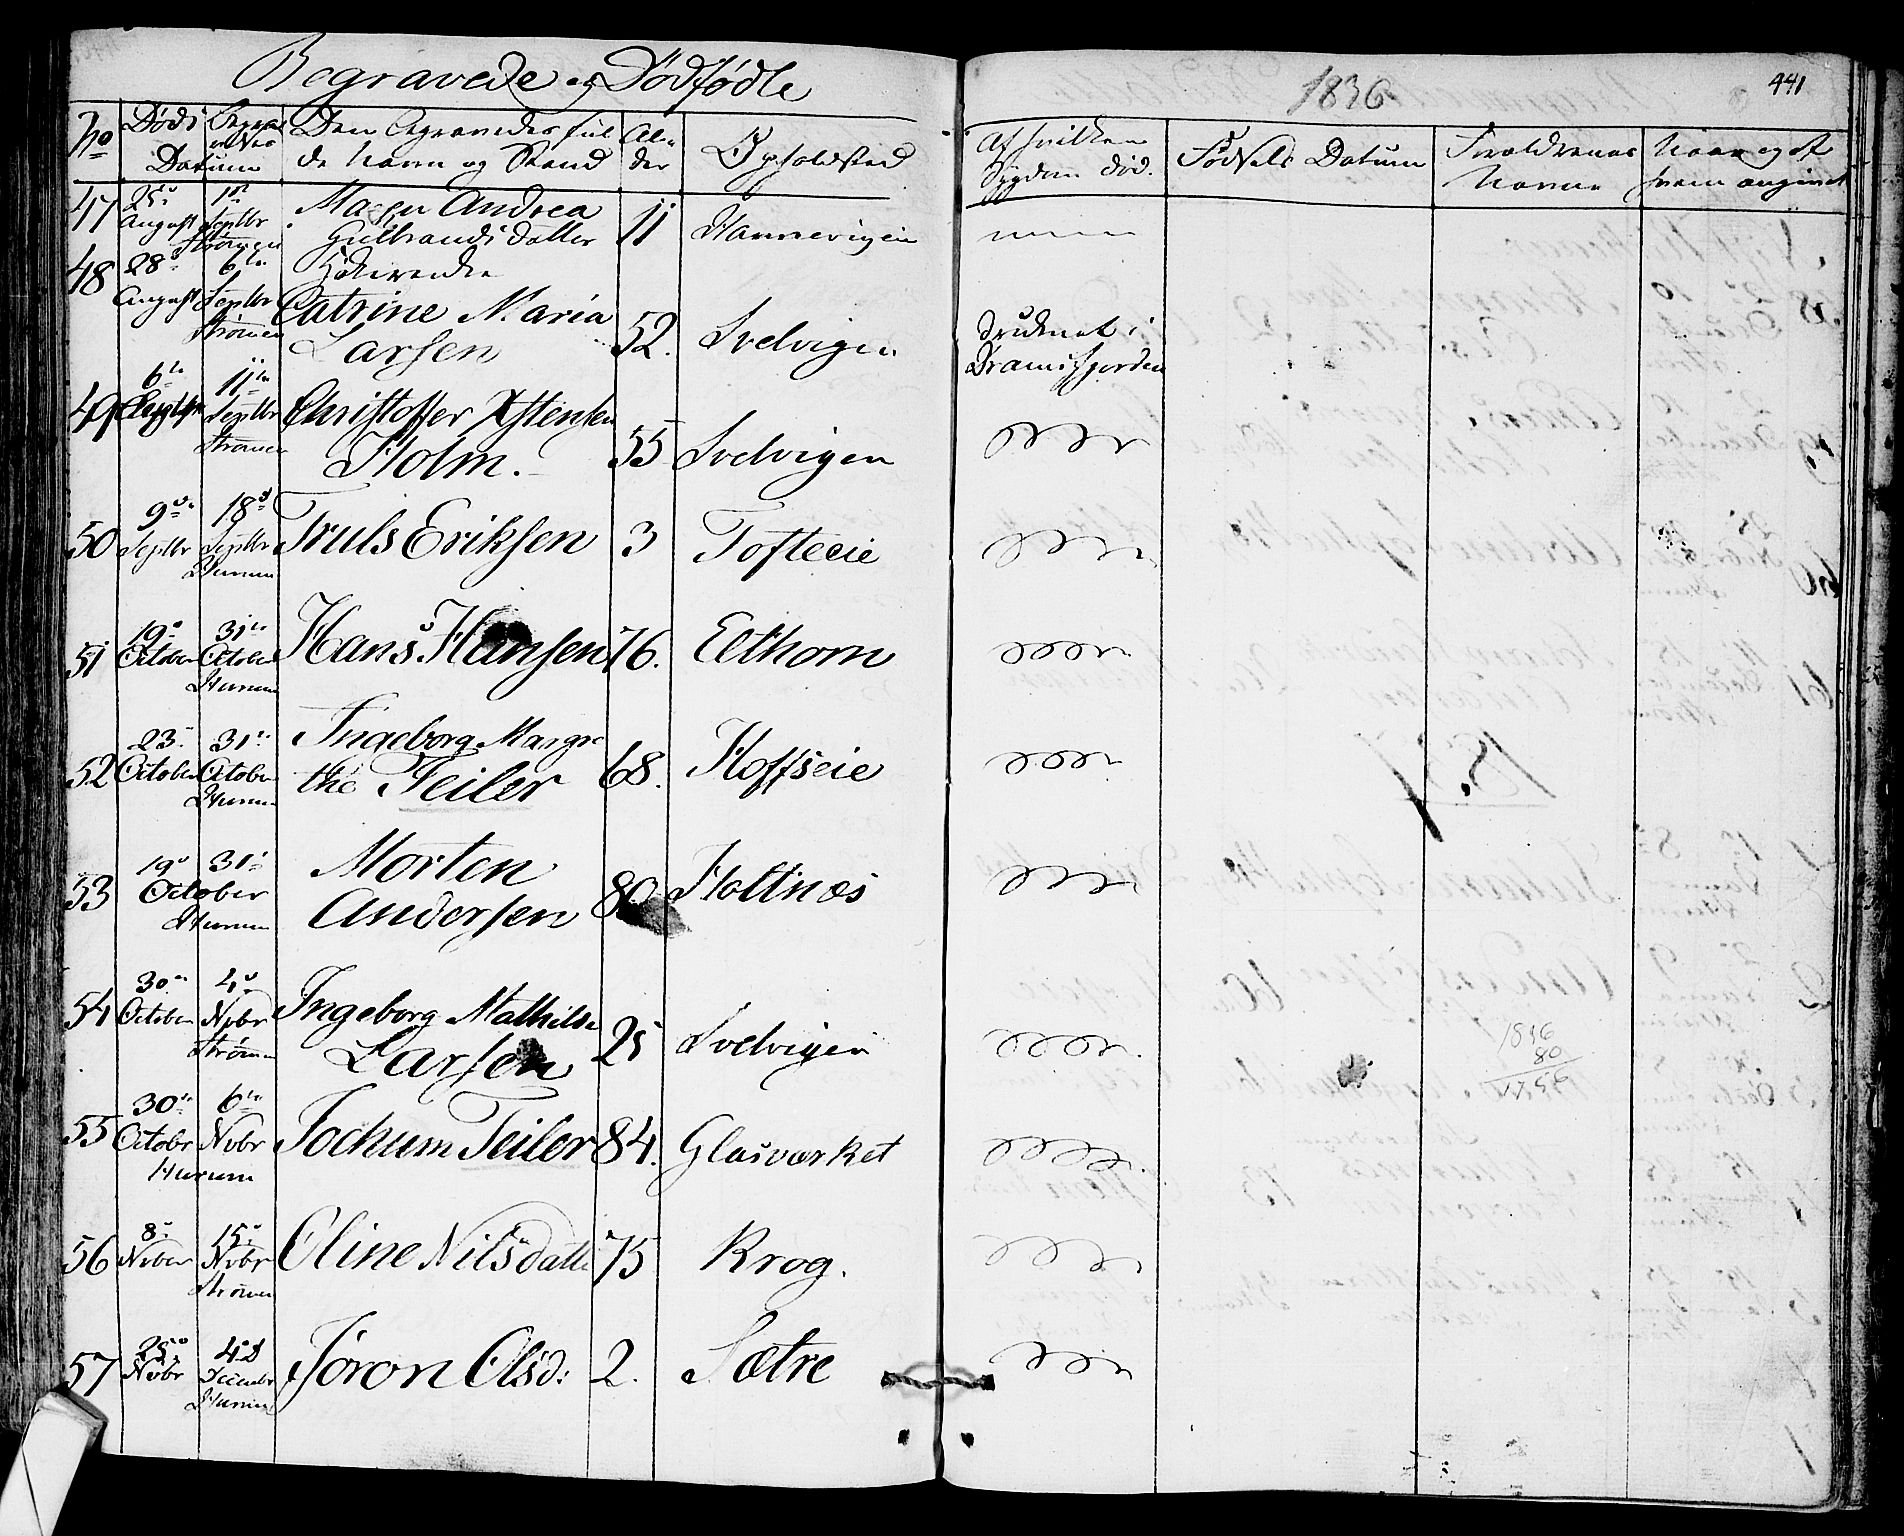 Begravede og Dødfødte
1836
441
No
Døds
Datum
Den Begravedes ful
de Navn og Stand
Al-
der
Opholdsted
Af hvilken
Sygdom død.
Fødsels Datum
Forældrenes
Navne
Naar og af
hvem angivet
47 25de August 1ste Septbr Strømen Maren Andrea
Gulbrands datter 11 Hannevigen
48 28de August 6te Septbr Strømen
Catrine Maria
Larsen 52. Svelvigen druknet i
Dramsfjorden
49 6te Septbr 11te Septbr Strømen Christoffer Estensen
Holm. 55 Svelvigen
50 9de Septbr 18d Septbr Hurum Truls Eriksen 3 Tofteeie
51 19de October 31te October Hurum Hans Hansen 76. Elthorn
52 23de October 31te October Hurum Ingeborg Margre
the Teiler 68. Hoffseie
53 19d 31te October Hurum Morten
Andersen 80. Holtnæs
54 30te October 4de Nvbr Strømen Ingeborg Mathilde
Larsen 25 Svelvigen
1836
80
1756
55 30te Octobr 6te Nvbr Hurum Jochum Teiler 84. Glasværket
56 8de Nvber 15de Nvbr Strømen Eline Nilsdatte 75 Krog.
57 25de Nvbr 4de Decembr Hurum Jøron Olsd: 2. Sætre